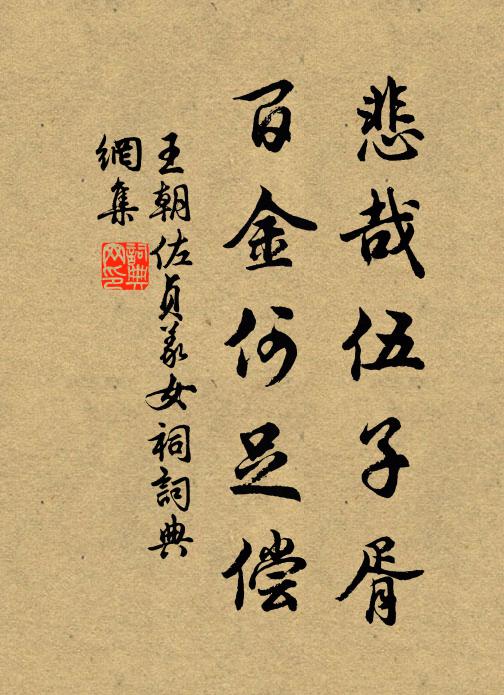 悲哉伍子胥
百金何足偿
王朝佐贞義女祠詞典
網集
詞典
网印